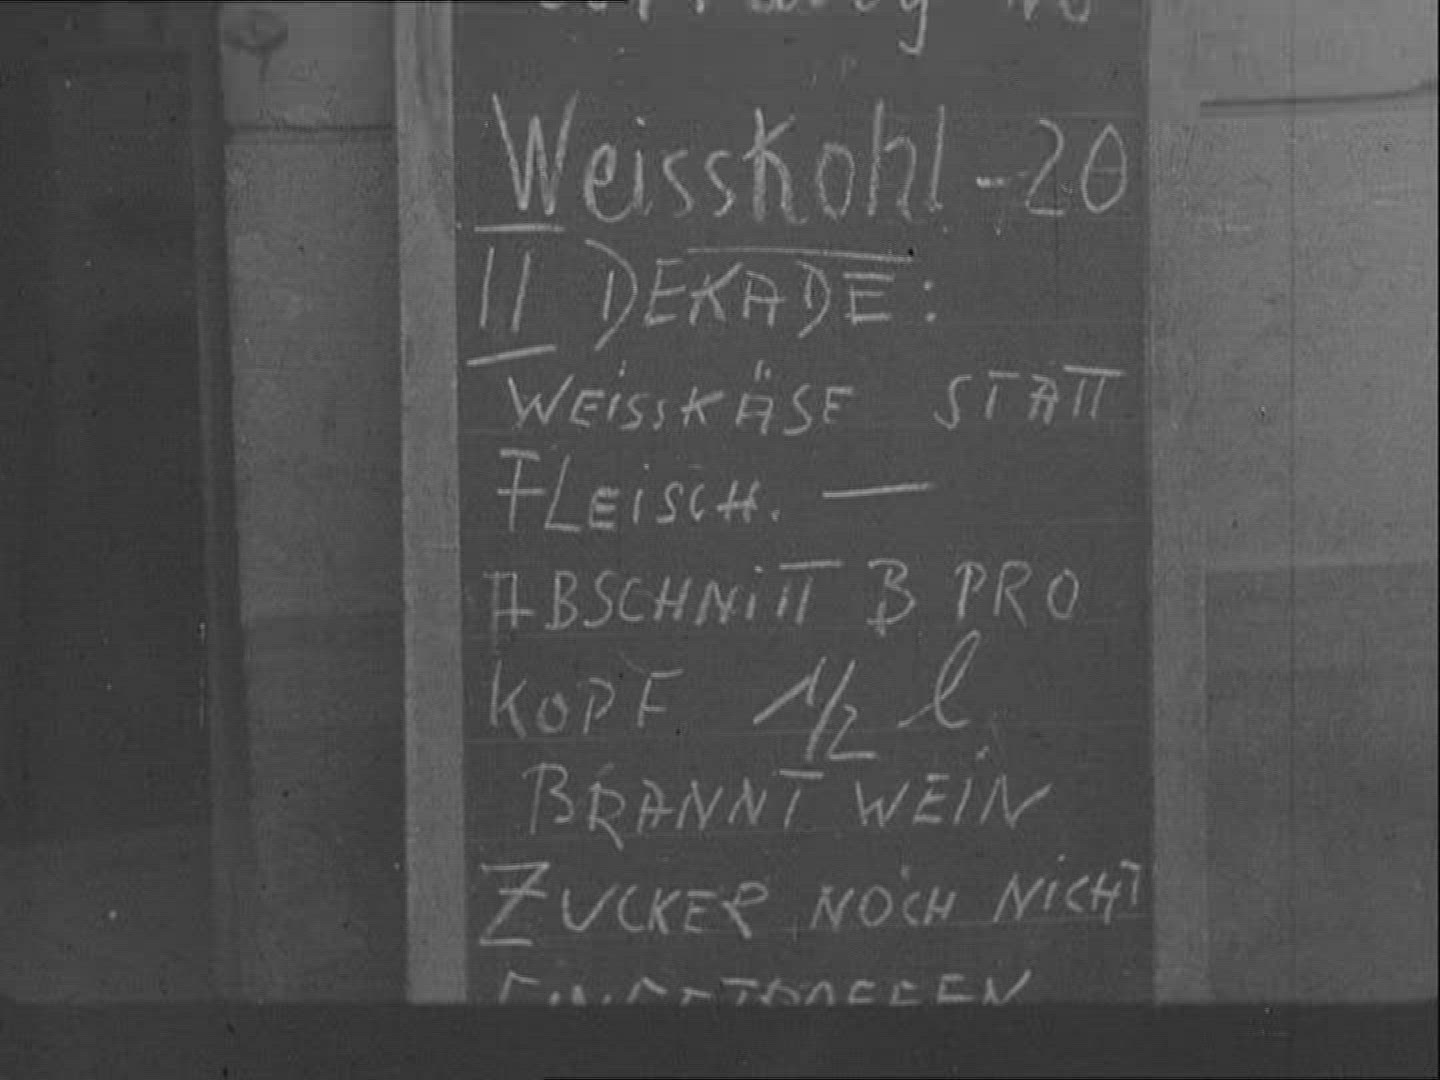 Weisskohl -20
II DEKADE:
WEISSKÄSE STATT
FLEISCH. —
ABSCHNITT B PRO
KOPF 1/2 l
BRANNTWEIN
ZUCKER NOCH NICHT
EINGETROFFEN